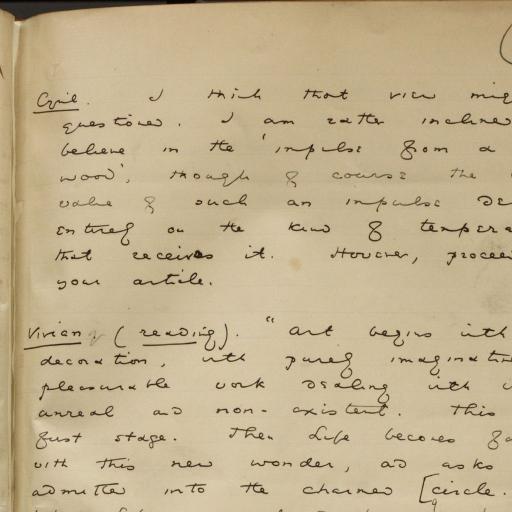 Cyril. I think that view mig
questioned. I am rather incline
believe in the 'impulse from a
wood', though of course the
value of such an impulse de
entirely on the kind of tempera
that receives it. However, procee
your article.
Vivian. (reading). "Art begins with
decoration, with purely imaginati
pleasurable work dealing with
unreal and non-existent. This
first stage. Then Life becomes fa
with this new wonder, and asks
admitted into the charmed [circle.